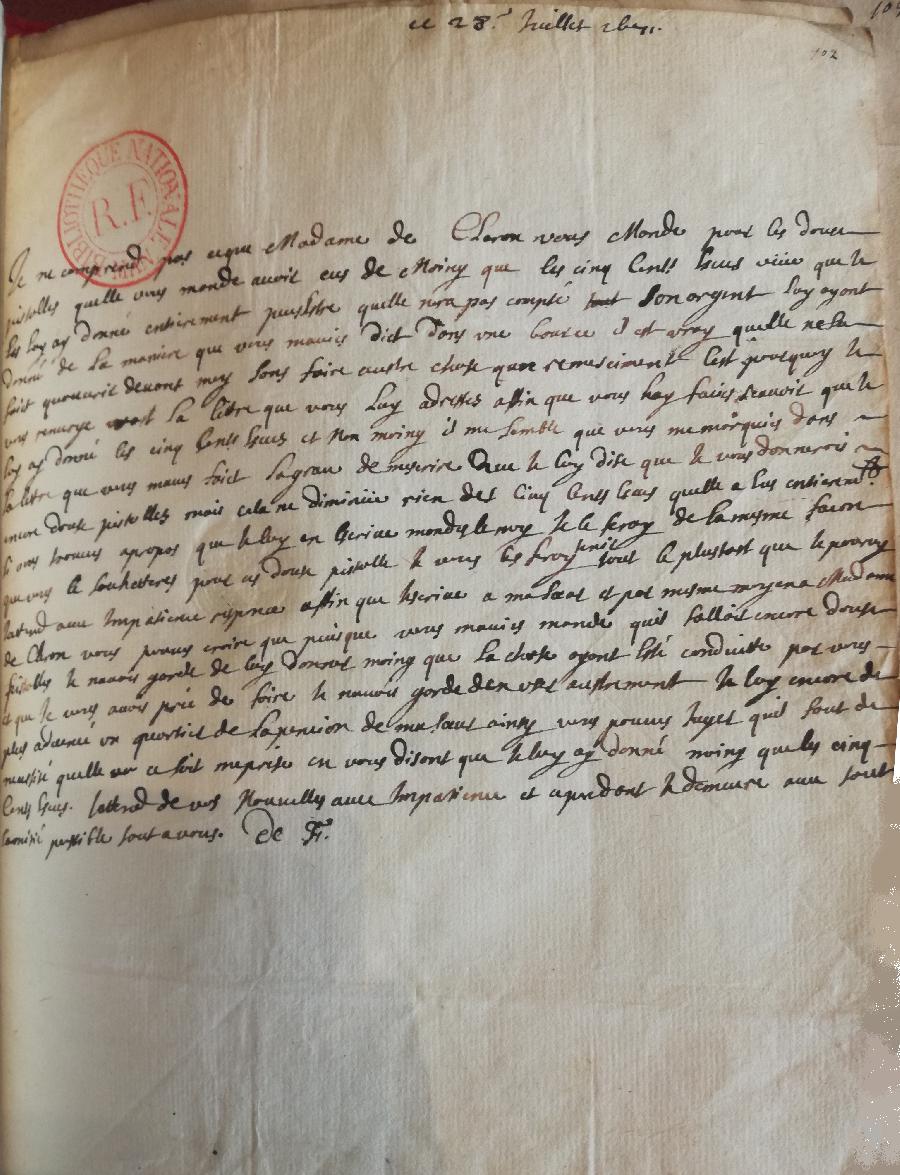 ce 28.e Juillet
102
BIBLIOTHEQUE NATIONALE
R.F.
MAN
Je ne comprend pas ceque Madame de Cleron vous Monde pour les douse
pistolles quelle vous monde avoir eus de Moins que les cinq Cents Escus veüe que Je
les luy ay donné entierement peutestre quelle nora pas compté son orgent luy ayont
donné de la maniere que vous mavies dict dons une bource il est vray quelle ne la
fait quouvrir devont moy sons faire austre chose quun remersciment Cest pourquoy Je
vous renvoye la letre que vous luy adresses affin que vous luy faites scavoir que Je
luy ay donné les cinq Cents Escus et Non moing il me semble que vous me morquies dons
la letre que vous maves fait la grace de mescrire que Je luy dise que Je vous donnerois
encore douse pistolles mais cela ne diminüe rien des Cinq Cents Escus quelle a Eus entierem.t
si vous trouves apropos que Je luy en Escrive mondes le moy Je le feray de la mesme facon
que vous le souhetteres pour ces douse pistolle Je vous les feray tenir tout le plustost que Je pouray
Jattend avec Impatience responce affin que Jescrive a ma sœur et par mesme moyen a Madame
de Cleron vous pouves croire que puisque vous mavies monde quil falloit encore douse
pistolles Je navois garde de luy donner moing que la chose ayont Esté conduitte par vous
et que Je vous avois prié de faire Je navois gorde den user austrement Je luy encore de
plus advencé un quortier de la pension de ma sœur ainsy vous pouves Juger quil faut de
necessité quelle ce soit meprise en vous disont que Je luy ay donné moing que les cinq
Cents Escus. Jattend de vos Nouvelles avec Impatience et cependont Je demeure avec tout
lamitié possible tout a vous. De Fr.